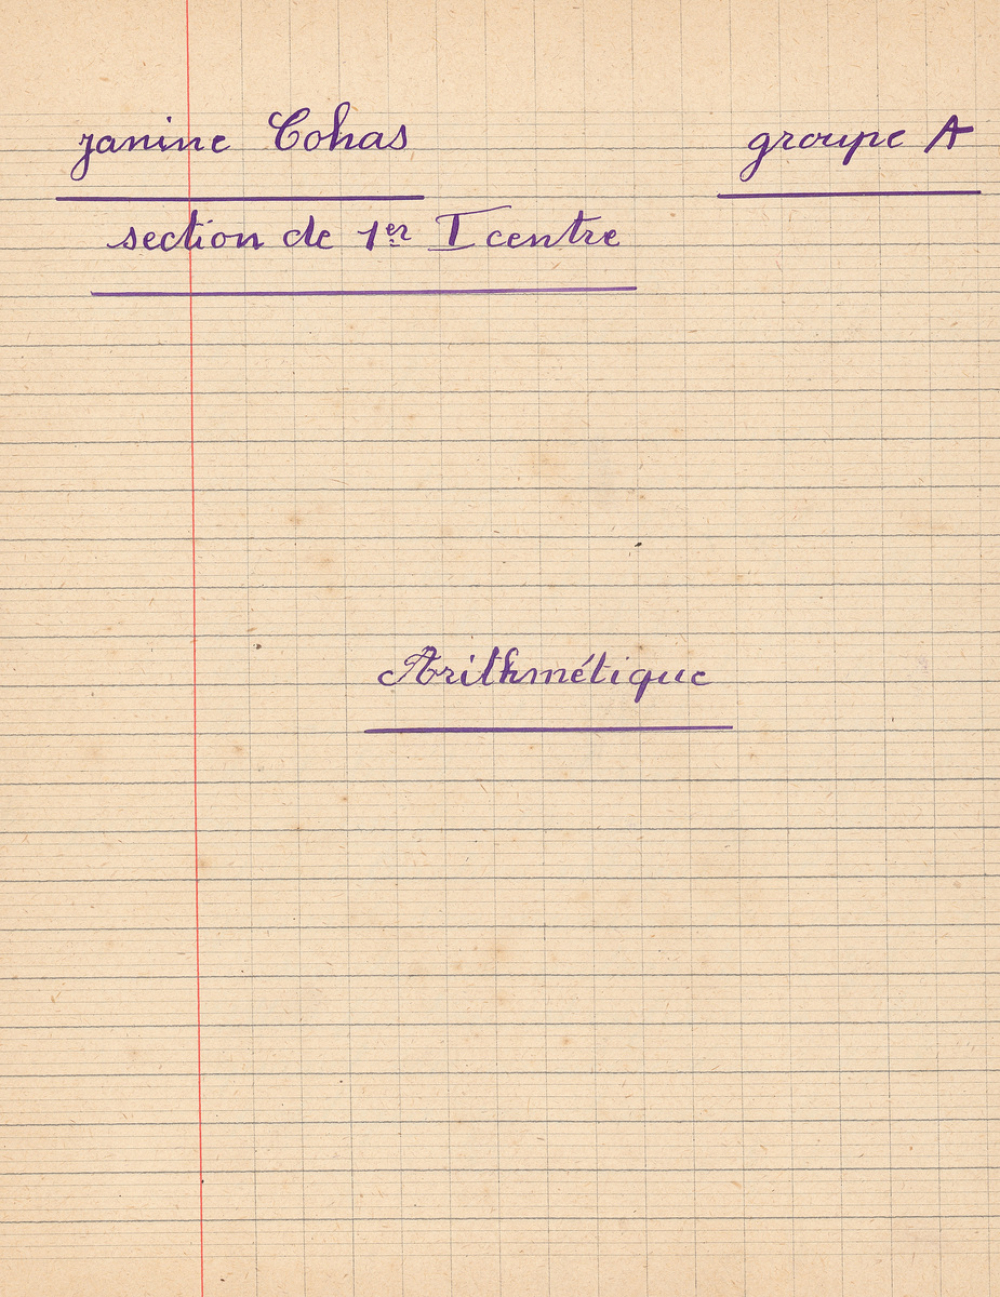 janine Cohas groupe A
section de 1er I centre
Arithmétique